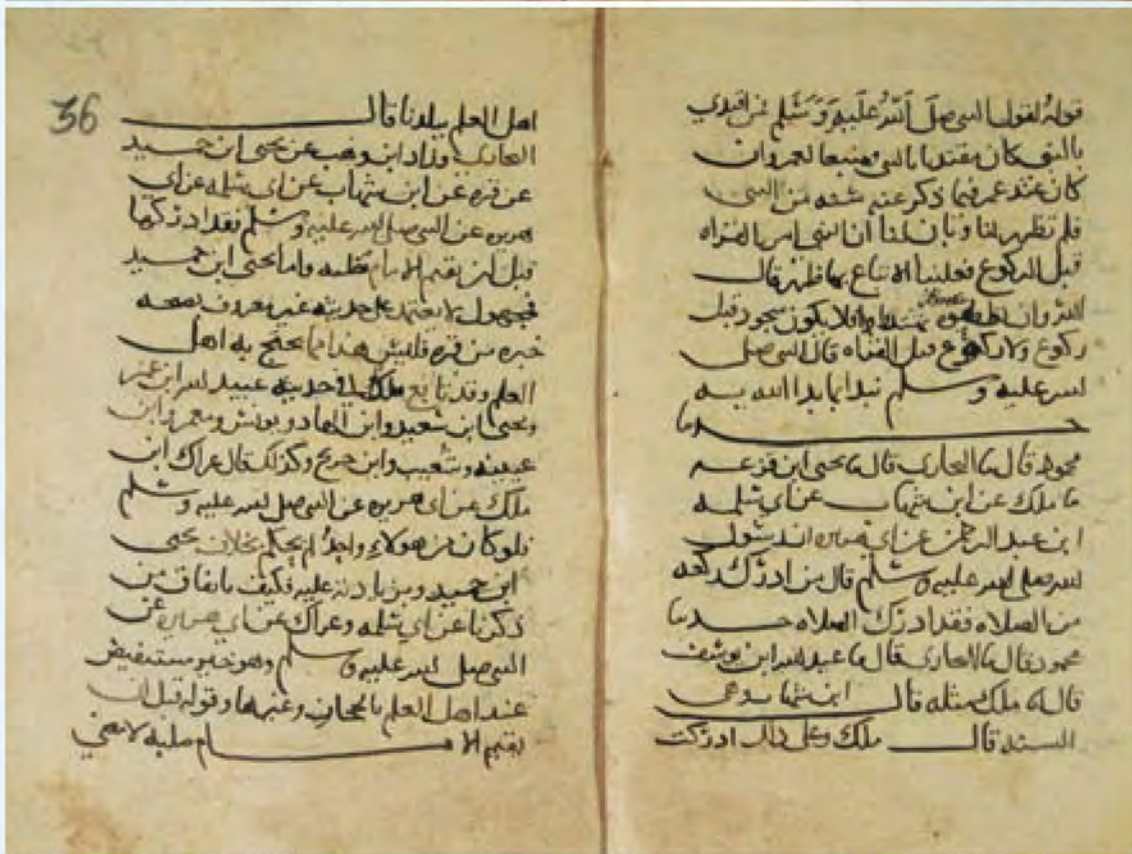 قوله لقول النبي صلى الله عليه وسلم فمن اقتدي
بالنبي كان مقتديا بالنبي متبعا لعمر وان
كان عند عمر فيما ذكر عنه سنه من النبي
فلم تظهر لنا وبان لنا ان النبي امر بالقراه
قبل الركوع فعلينا الاتباع بما ظهر قال
الله وان تطيعوه تهتدوا فلا يكون سجود قبل
ركوع ولا ركوع قبل القراه قال النبي صلى
الله عليه وسلم نبدا بما بدا الله به
حدثنا
محمود قال نا البخاري قال نا يحيى ابن قزعه
نا ملك عن ابن شهاب عن ابي سلمه
ابن عبد الرحمن عن ابي هريره ان رسول
الله صلى الله عليه وسلم قال من ادرك ركعه
من الصلاه فقد ادرك الصلاه حدثنا
محمود قال نا البخاري قال نا عبد الله ابن يوسف
قال نا ملك مثله قال ابن شهاب وهي
السنه قال ملك وعلى ذلك ادركت
36
اهل العلم ببلدنا قال
البخاري وزاد ابن وهب عن يحيى ابن حميد
عن قره عن ابن شهاب عن ابي سلمه عن ابي
هريره عن النبي صلى الله عليه وسلم فقد ادركها
قبل ان يقيم الامام صلبه واما يحيى ابن حميد
فمجهول لا يعتمد على حديثه غير معروف بصحه
خبره من قره فليس هذا مما يحتج به اهل
العلم وقد تابع ملك في حديثه عبيد الله ابن عمر
ويحيى ابن سعيد وابن الهاد ويونس ومعمر وابن
عيينه وشعيب وابن جريج وكذلك قال عراك ابن
ملك عن ابي هريره عن النبي صلى الله عليه وسلم
فلو كان من هولاء واحد لم يحكم بخلاف يحيى
ابن حميد وبزيادته عليه فكيف باتفاق من
ذكرنا عن ابي سلمه وعراك عن ابي هريره عن
النبي صلى الله عليه وسلم وهو خبر مستفيض
عند اهل العلم بالحجاز وغيرها وقوله قبل ان
يقيم الامام صلبه لا معنى